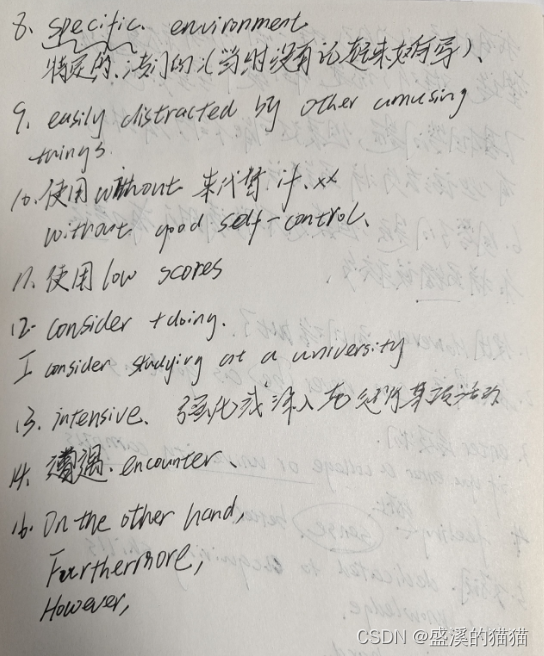 8. specific. environment
特定的、专门的(当时没有记起来如何写)、
9. easily distracted by other amusing
things.
10. 使用without 来代替if. xx
without good self-control、
11. 使用low scores
12. consider +doing.
I consider studying at a university
13. intensive、强化或深入地
14. 遭遇. encounter、
16. On the other hand,
Furthermore,
However,
CSDN @盛溪的猫猫